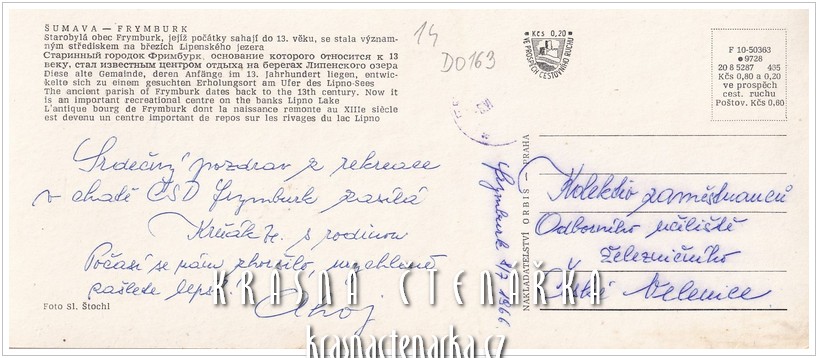 ŠUMAVA — FRYMBURK
Starobylá obec Frymburk, jejíž počátky sahají do 13. věku, se stala význam-
ným střediskem na březích Lipenského jezera
Старинный городок Фримбурк, основание которого относится к 13
веку, стал известным центром отдыха на берегах Липенского озера
Diese alte Gemeinde, deren Anfänge im 13. Jahrhundert liegen, entwic-
kelte sich zu einem gesuchten Erholungsort am Ufer des Lipno-Sees
The ancient parish of Frymburk dates back to the 13th century. Now it
is an important recreational centre on the banks Lipno Lake
L'antique bourg de Frymburk dont la naissance remonte au XIIIe siècle
est devenu un centre important de repos sur les rivages du lac Lipno
14
D0163
Kčs 0,20
VE PROSPĚCH CESTOVNÍHO RUCHU
F 10-50363
9728
20 8 5287 405
Kčs 0,60 a 0,20
ve prospěch
cest. ruchu
Poštov. Kčs 0,60
Srdečný pozdrav z rekreace
v chatě ČSD Frymburk zasílá
s rodinou
Počasí se nám zhoršilo,
zašlete lepší.
Ahoj
Foto Sl. Štochl
Frymburk 1/7 1966.
NAKLADATELSTVÍ ORBIS — PRAHA
Kolektiv zaměstnanců
Odborného učiliště
železničního
České Velenice
KRASNA CTENARKA
krasnactenarka.cz